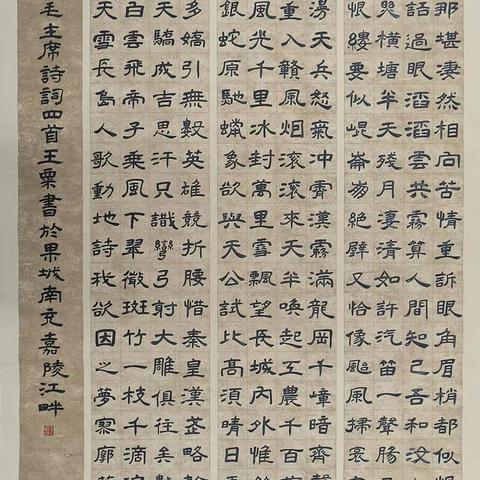 那堪淒然相向苦情重訴眼角眉梢都似恨
語過眼滔滔雲共霧算人間知己吾和汝
哭橫塘半天殘月淒清如許汽笛一聲腸
恨縷要似崐崙崩絕壁又恰像颱風掃寰
湯天兵怒氣冲霄漢霧滿龍岡千嶂暗齊聲
重入贛風烟滾滾來天半喚起工農千百
風光千里冰封萬里雪飄望長城内外惟餘
銀蛇原馳蠟象欲與天公試比高須晴日
多嬌引無數英雄競折腰惜秦皇漢武略輸
天驕成吉思汗只識彎弓射大雕俱往矣數
白雲飛帝子乘風下翠微斑竹一枝千滴淚
天雪長島人歌動地詩我欲因之夢寥廓
毛主席詩詞四首王粟書於果城南充嘉陵江畔